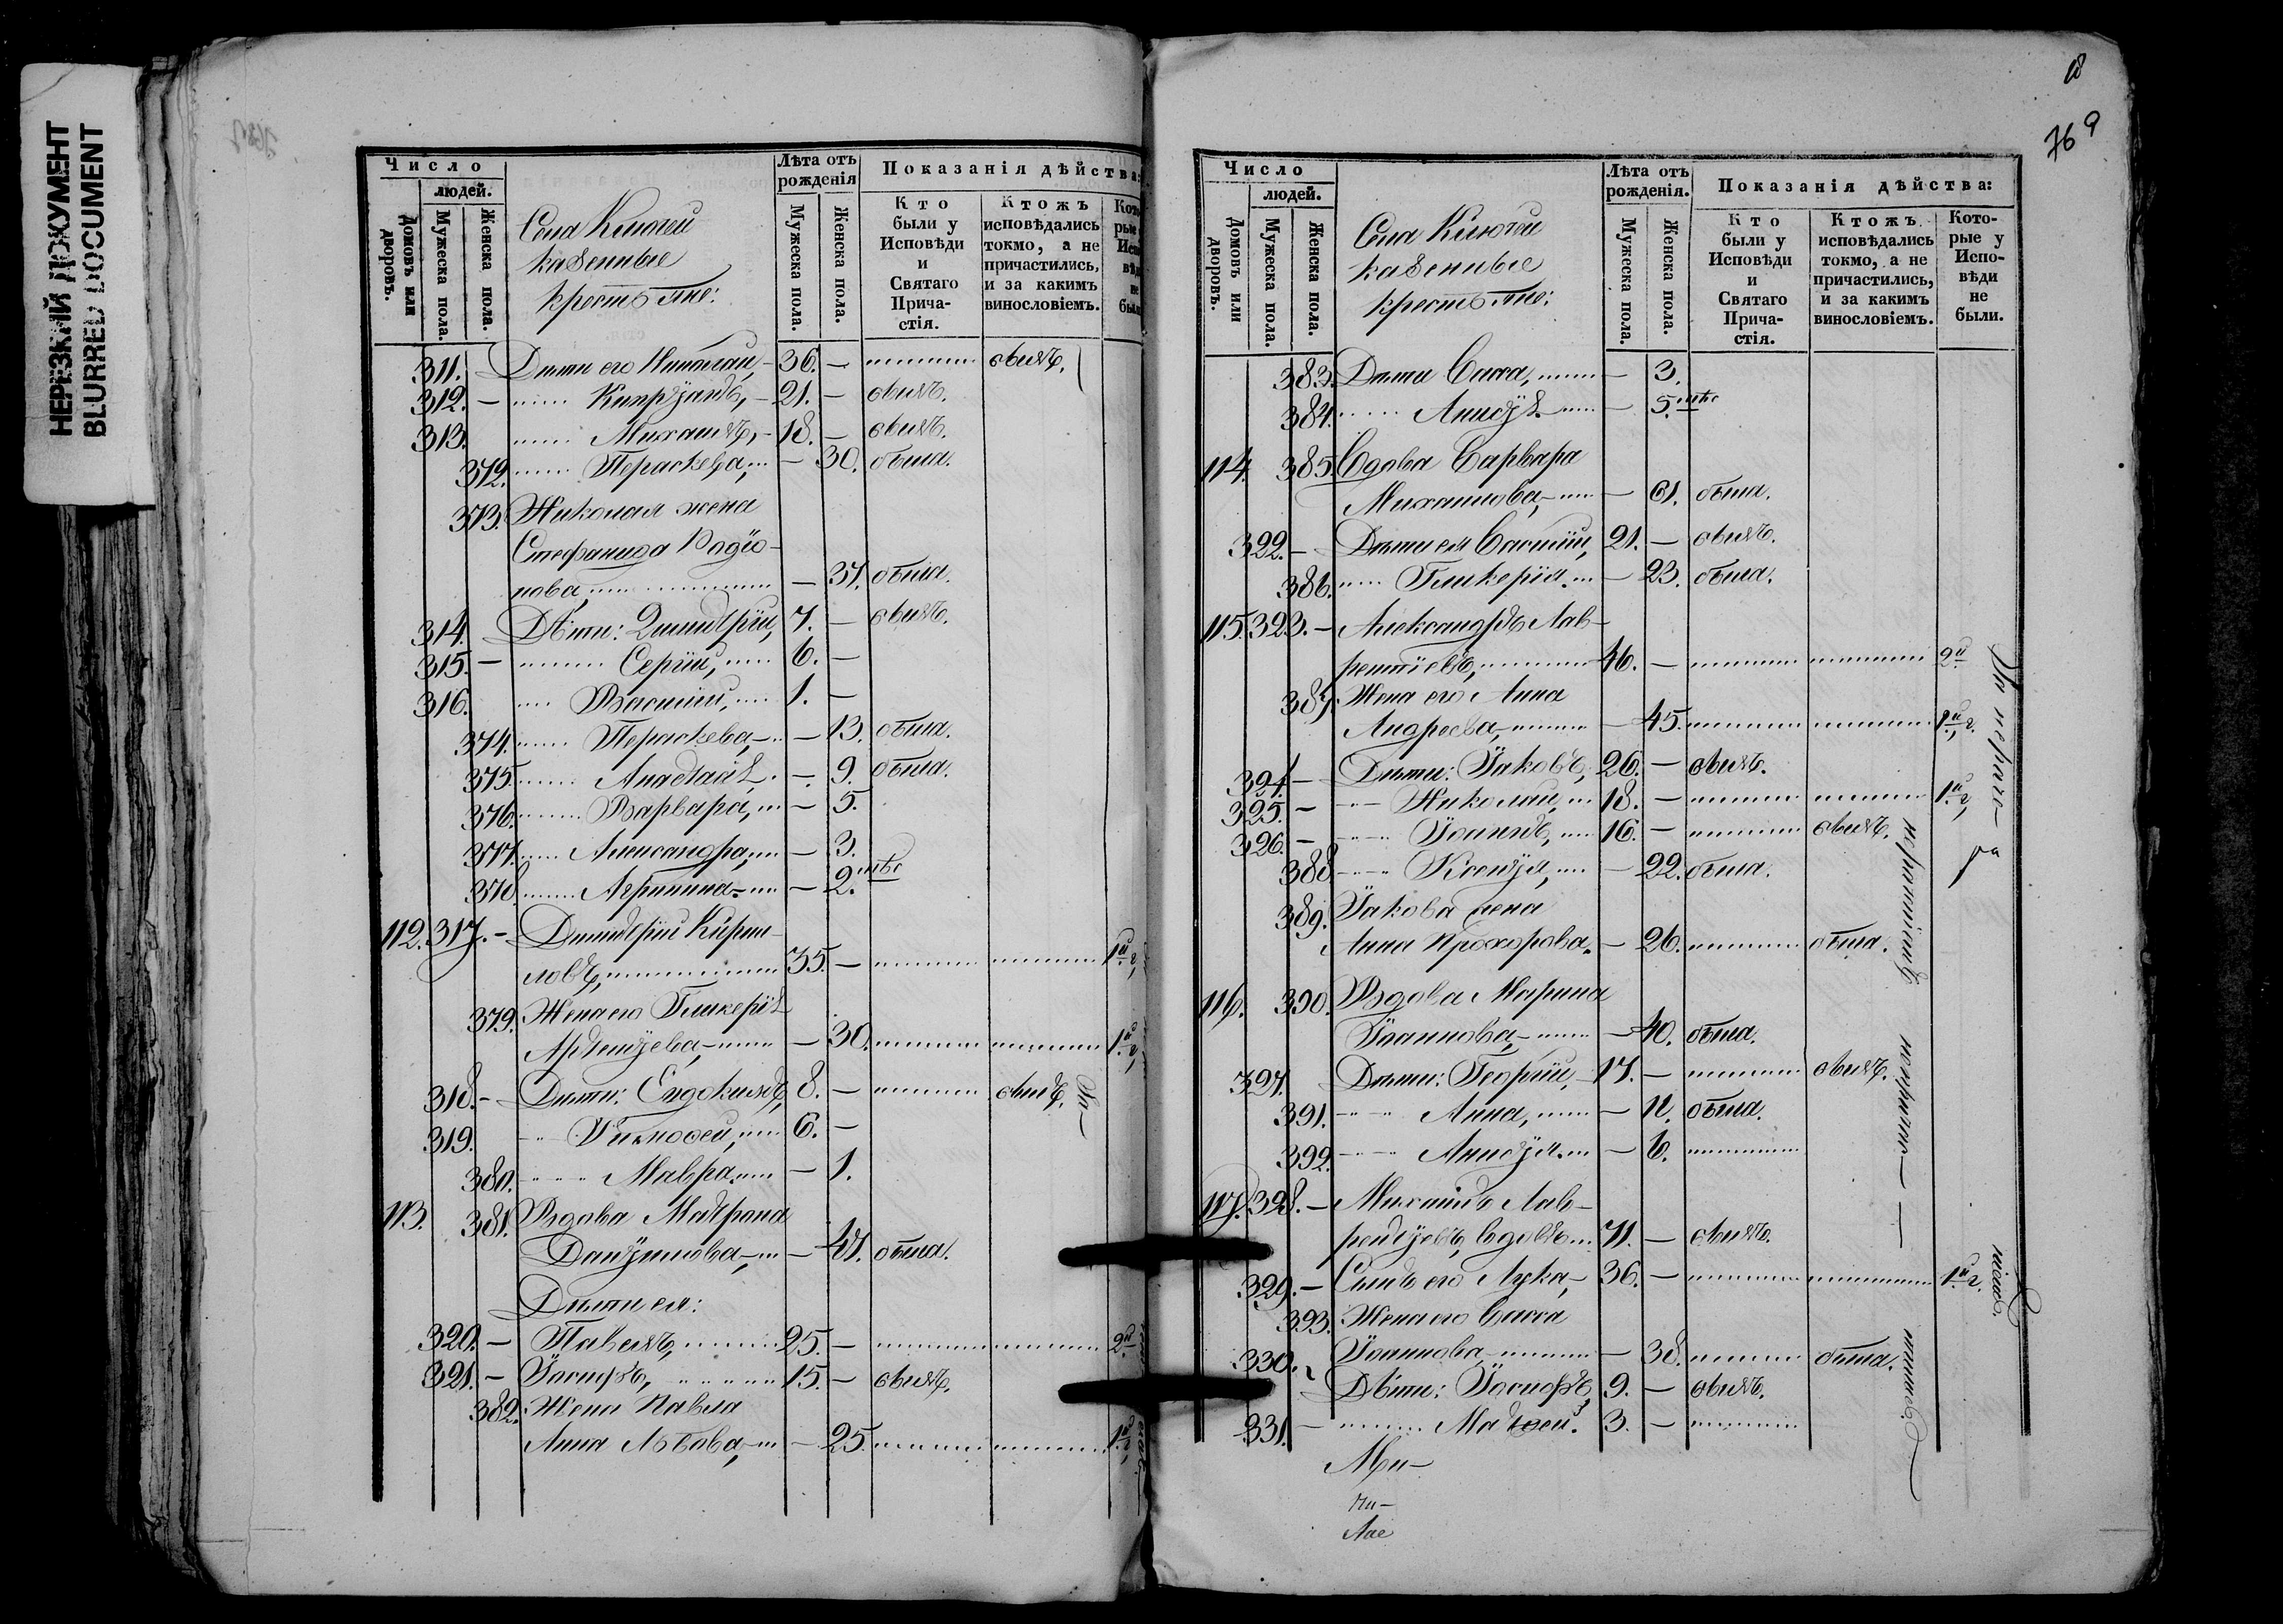 НЕРЕЗКИЙ ДОКУМЕНТ
BLURRED DOCUMENT
Число
людей.
Домовъ или дворовъ.
Мужеска пола.
Женска пола.
Села Ключей
казенные
крестьяне:
Лѣта отъ рожденія
Мужеска пола.
Женска пола.
Показанія дѣйства:
Кто были у Исповѣди и Святаго Прича-стія.
Ктожъ исповѣдались токмо, а не причастились, и за какимъ винословіемъ.
311. Дѣти его Николай, 36. — былъ,
312. — Кипріанъ, 21. — былъ.
313. Михаилъ, 18. — былъ.
372. Параскева, — 30. была.
373. Николая жена
Стефанида Родіо-
нова, — 37. была.
314. Дѣти: Димитрій, 7. — былъ.
315. — Сергій, 6. —
316. Василій, 1. —
374. Параскева, — 13. была.
375. — 9. была.
376. Варвара, — 5.
377. Александра, — 3.
378. Агрипина — 2. мѣс
112. 317. — Димитрій Кирил-
ловъ, 35. — 1й г,
379. Жена его Гликерія
Артемьева, — 30. 1й г,
318. — Дѣти: Евдокимъ, 8. — былъ,
319. Тимофей, 6. —
380. Мавра — 1.
113. 381. Вдова Матрона
Даниилова, — 47. была.
Дѣти ея:
320. — Павелъ, 25. — 2й
321. — Іосифъ, 15. — былъ,
382. Жена Павла
Анна Львова, — 25. 1й г,
18
769
Число
людей.
Домовъ или дворовъ.
Мужеска пола.
Женска пола.
Села Ключей
казенные
крестьяне:
Лѣта отъ рожденія.
Мужеска пола.
Женска пола.
Показанія дѣйства:
Кто были у Исповѣди и Святаго Прича-стія.
Ктожъ исповѣдались токмо, а не причастились, и за какимъ винословіемъ.
Кото-рые у Испо-вѣди не были.
383. Дѣти Васса, — 3.
384. — 5. мѣс
114. 385. Вдова Варвара
Михаилова, — 61. была.
322. — Дѣти ея Василій, 21. — былъ.
386. Гликерія — 23. была.
115. 323. — Александръ Лав-
рентіевъ, 46. — 2й
387. Жена его Анна
Андреева, — 45. 1й г.
324. — Дѣти: Іаковъ, 26. — былъ.
325. — Николай, 18. — 1й г,
326. — Іоаннъ, 16. — былъ,
388. Ксенія, — 22. была.
389. Іакова жена
Анна Прохорова — 26. была.
116. 390. Вдова Марина
Іоаннова, — 40. была.
327. Дѣти: Георгій, 17. — былъ,
391. Анна, — 12. была.
392. Анисія — 6.
117. 328. — Михаилъ Лав-
рентіевъ, вдовъ 71. — былъ.
329. — Сынъ его Лука, 36. — 1й г.
393. Жена его Васса
Іоаннова, — 38. была.
330. Дѣти: Іосифъ, 9. — былъ.
331. — Матвей. 3. —